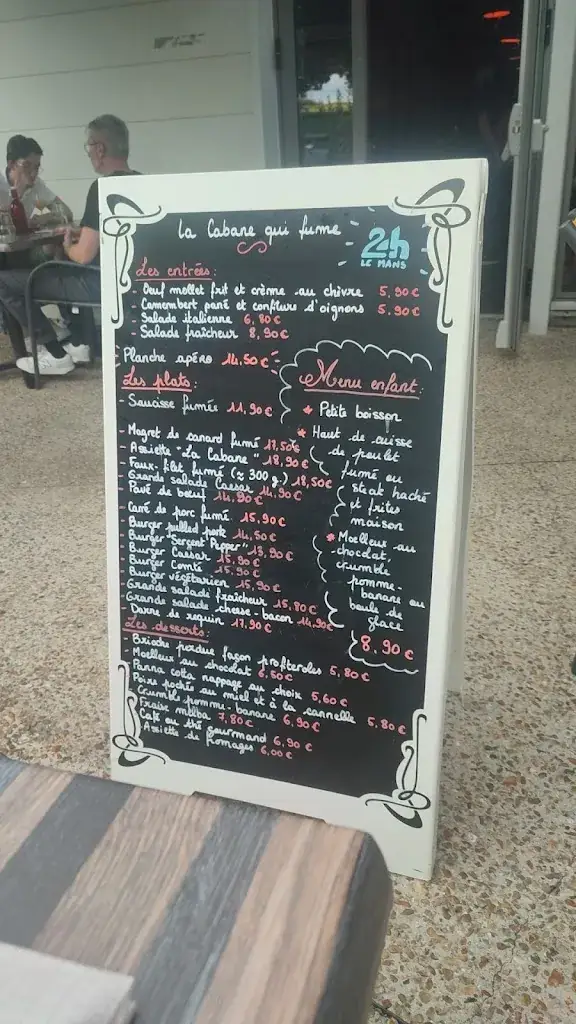 La Cabane qui fume
24h
LE MANS
Les entrées:
- Oeuf mollet frit et crème au chèvre 5,90€
- Camembert pané et confiture d'oignons 5.90€
- Salade italienne 6,80€
- Salade fraîcheur 8,90€
Planche apéro 14,50€
Les plats:
- Saucisse fumée 11,90€
- Magret de canard fumé 17,50€
- Assiette "La Cabane" 18,90€
- Faux-filet fumé (≈ 300 g.) 18,50€
- Grande salade Caesar 14,90€
- Pavé de boeuf 14,90€
- Carré de porc fumé 15,90€
- Burger pulled pork 14,50€
- Burger "Sergent Pepper" 13,90€
- Burger Caesar 15,90€
- Burger Comté 15,90€
- Burger végétarien 15,90€
- Grande salade fraîcheur 15,80€
- Grande salade cheese-bacon 14,90€
- Darne de requin 17,90€
Les desserts:
- Brioche perdue façon profiteroles 5,80€
- Moelleux au chocolat 6,50€
- Panna cotta nappage au choix 5,60€
- Poire pochée au miel et à la cannelle 5,80€
- Crumble pomme-banane 6,90€
- Fraise melba 7,80€
- Café ou thé gourmand 6,90€
- Assiette de fromages 6,00€
Menu enfant:
* Petite boisson
* Haut de cuisse
de poulet
fumé ou
steak haché
et frites
maison
* Moelleux au
chocolat,
crumble
pomme-
banane ou
boule de
glace
8.90€